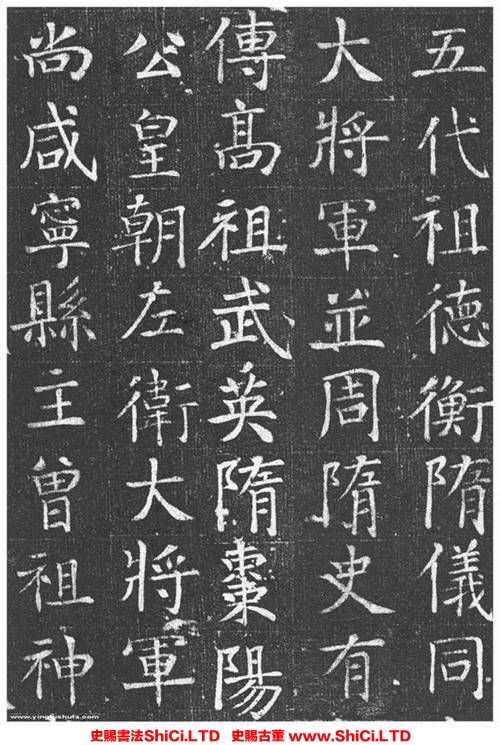 五代祖德衡隋儀同
大將軍並周隋史有
傳高祖武英隋棗陽
公皇朝左衛大將軍
尚咸寧縣主曾祖神
www.yingbishufa.com
史賜書法ShiCi.LTD 史賜古董 www.ShiCi.LTD